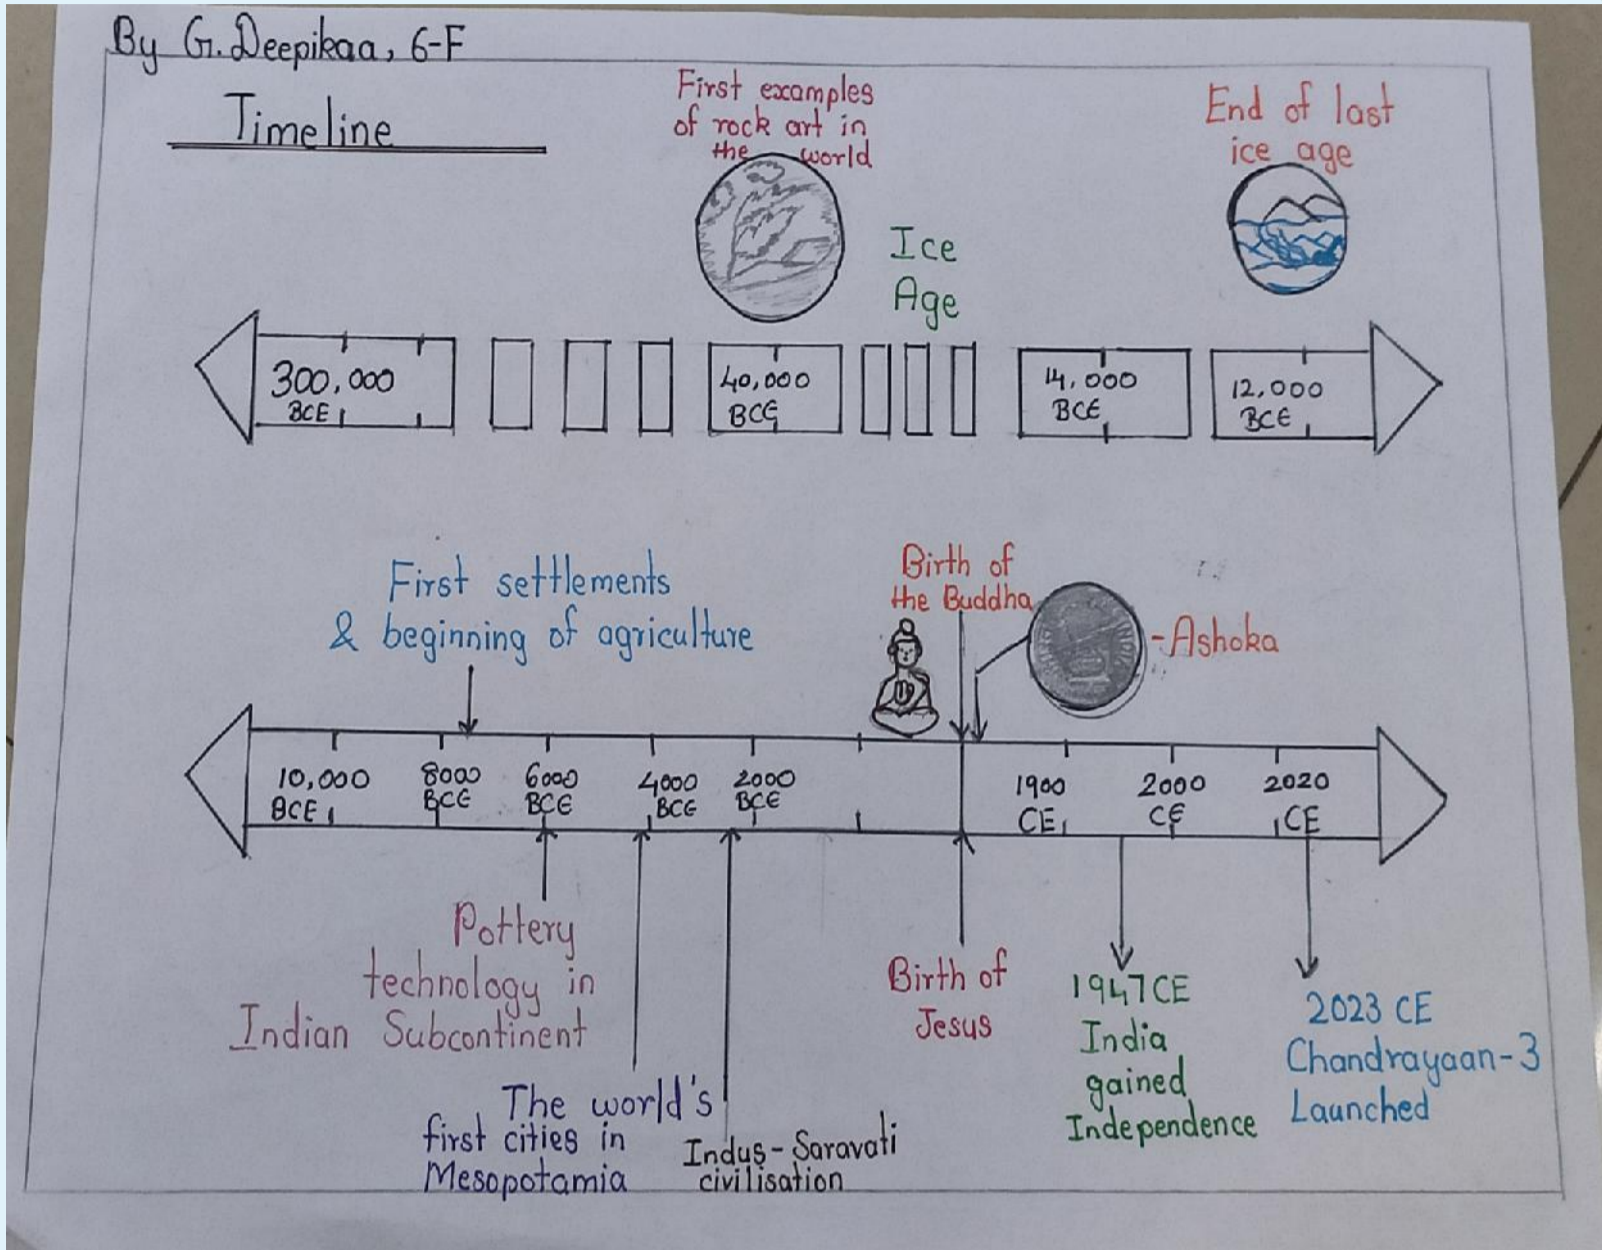 By G. Deepikaa, 6-F
Timeline
First examples
of rock art in
the world
End of last
ice age
Ice
Age
300,000
BCE
40,000
BCE
14,000
BCE
12,000
BCE
First settlements
& beginning of agriculture
Birth of
the Buddha
-Ashoka
10,000
BCE
8000
BCE
6000
BCE
4000
BCE
2000
BCE
1900
CE
2000
CE
2020
CE
Pottery
technology in
Indian Subcontinent
The world's
first cities in
Mesopotamia
Indus-Saravati
civilisation
Birth of
Jesus
1947 CE
India
gained
Independence
2023 CE
Chandrayaan-3
Launched